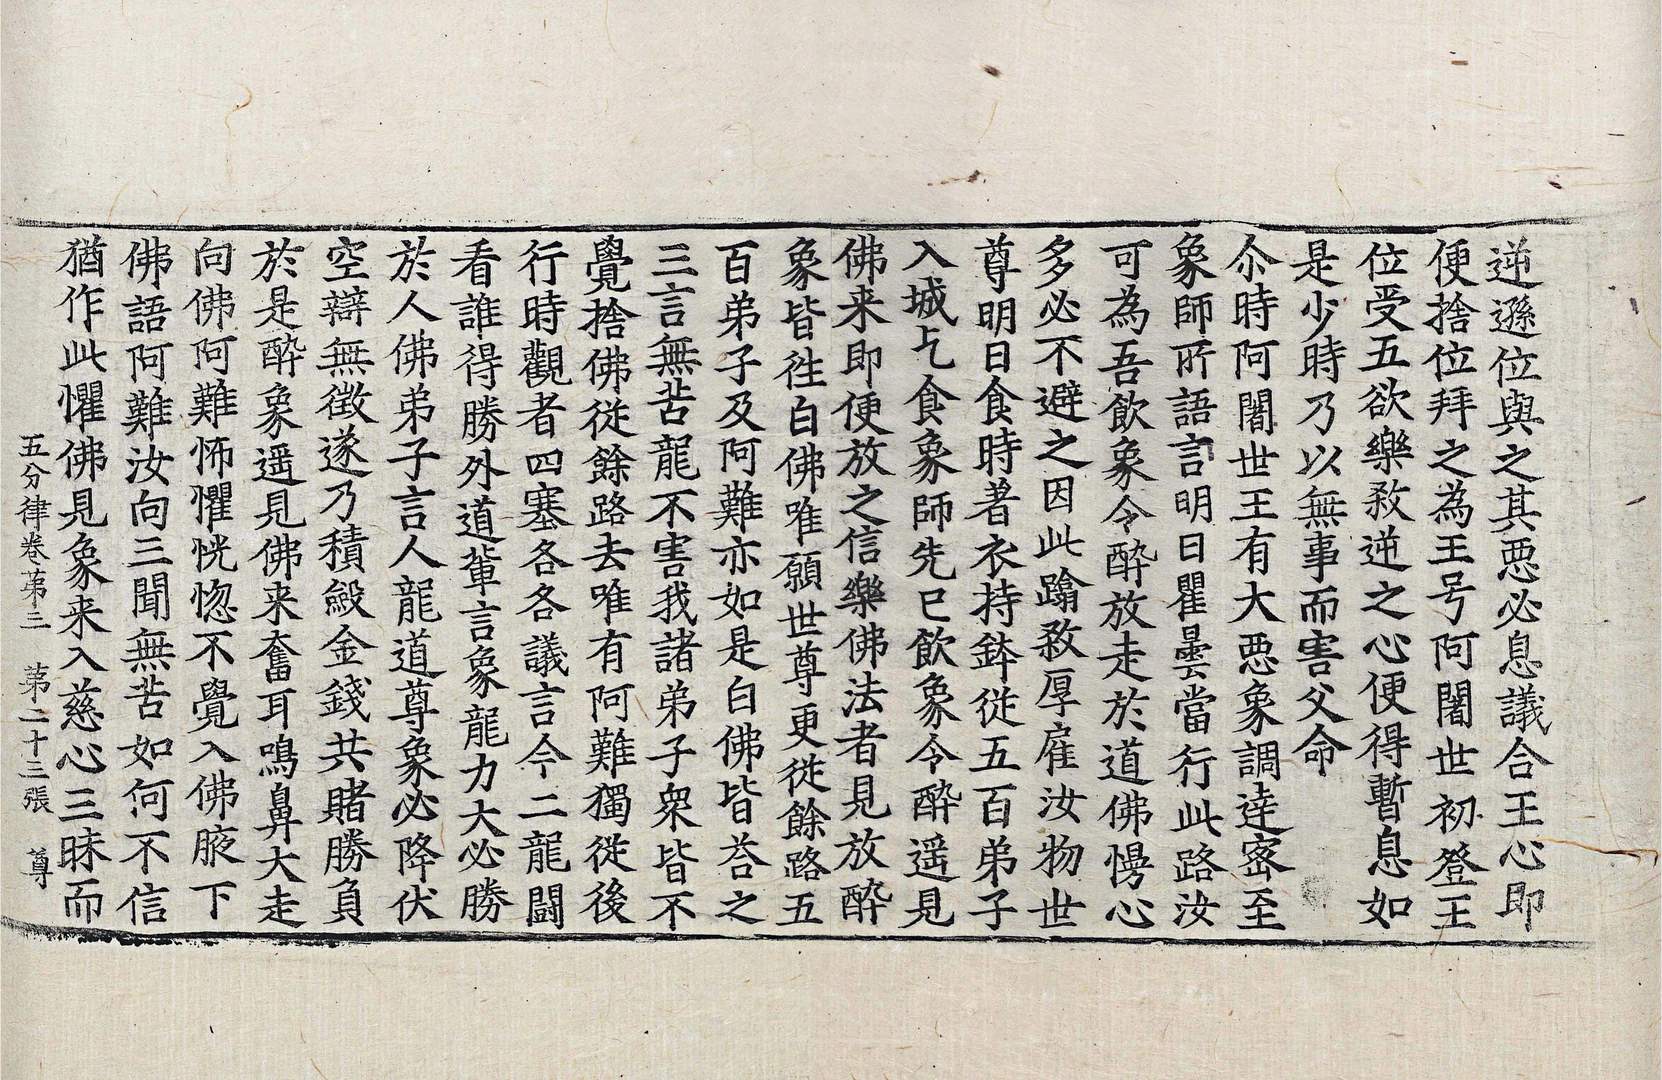 逆遜位與之其悪必息議合王心即
便捨位拜之為王号阿闍世初登王
位受五欲樂敎逆之心便得暫息如
是少時乃以無事而害父命
尒時阿闍世王有大悪象調達宻至
象師所語言明日瞿曇當行此路汝
可為吾飲象令醉放走於道佛憍心
多必不避之因此蹹敎厚雇汝物世
尊明日食時著衣持鉢従五百弟子
入城乞食象師先已飲象令醉遥見
佛来即便放之信樂佛法者見放醉
象皆徃白佛唯願世尊更従餘路五
百弟子及阿難亦如是白佛皆荅之
三言無苦龍不害我諸弟子衆皆不
覺捨佛従餘路去唯有阿難獨従後
行時觀者四塞各各議言今二龍闘
看誰得勝外道軰言象龍力大必勝
於人佛弟子言人龍道尊象必降伏
空辯無徴遂乃積緞金錢共賭勝負
於是醉象遥見佛来奮耳鳴鼻大走
向佛阿難怖懼恍惚不覺入佛腋下
佛語阿難汝向三聞無苦如何不信
猶作此懼佛見象来入慈心三昧而
五分律卷第三 第二十三張 尊